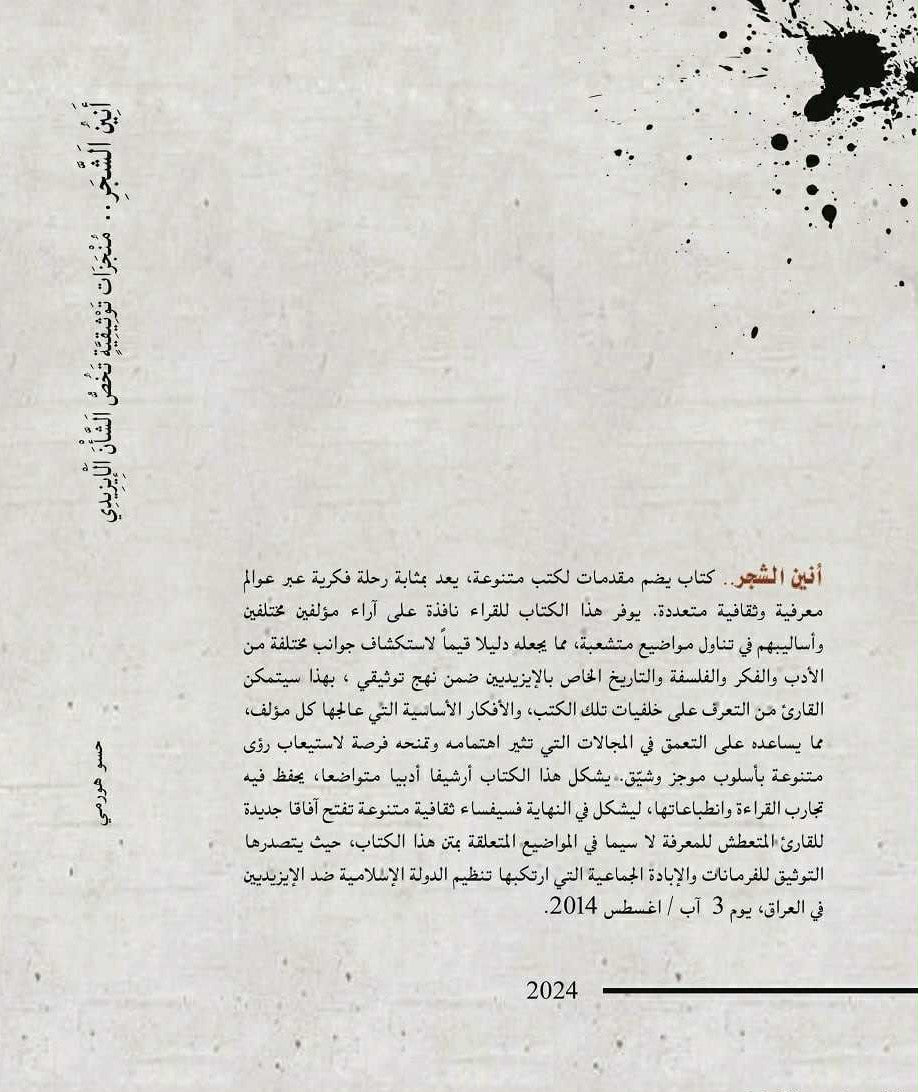 أَنِينُ الشَّجَرِ.. مُنْجَزَات تَوْثِيقِيَّةٍ تَخُصُّ الشَّأْنَ الْإِيزِيدِي
حسو هورمي
أنين الشجر.. كتاب يضم مقدمات لكتب متنوعة، يعد بمثابة رحلة فكرية عبر عوالم
معرفية وثقافية متعددة. يوفر هذا الكتاب للقراء نافذة على آراء مؤلفين مختلفين
وأساليبهم في تناول مواضيع متشعبة، مما يجعله دليلا قيماً لاستكشاف جوانب مختلفة من
الأدب والفكر والفلسفة والتاريخ الخاص بالإيزيديين ضمن نهج توثيقي ، بهذا سيتمكن
القارئ من التعرف على خلفيات تلك الكتب، والأفكار الأساسية التي عالجها كل مؤلف،
مما يساعده على التعمق في المجالات التي تثير اهتمامه وتمنحه فرصة لاستيعاب رؤى
متنوعة بأسلوب موجز وشيّق. يشكل هذا الكتاب أرشيفا أدبيا متواضعا، يحفظ فيه
تجارب القراءة وانطباعاتها، ليشكل في النهاية فسيفساء ثقافية متنوعة تفتح آفاقا جديدة
للقارئ المتعطش للمعرفة لا سيما في المواضيع المتعلقة بمتن هذا الكتاب، حيث يتصدرها
التوثيق للفرمانات والإبادة الجماعية التي ارتكبها تنظيم الدولة الإسلامية ضد الإيزيديين
في العراق، يوم 3 آب / اغسطس 2014.
2024